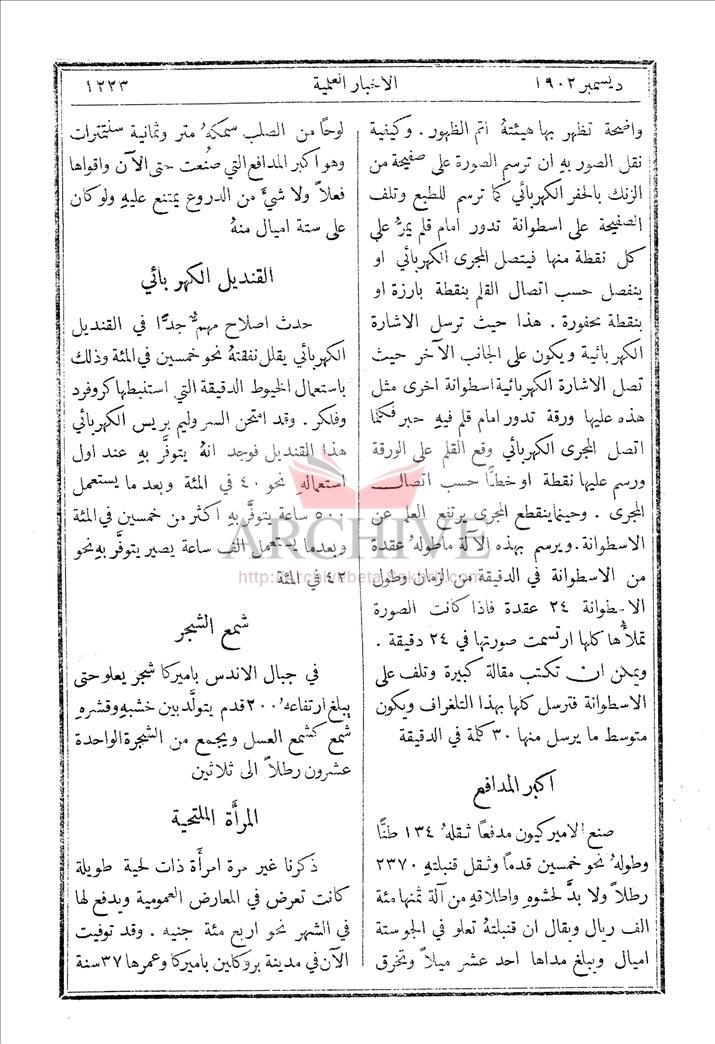 ديسمبر ١٩٠٢
الاخبار العلمية
١٢٢٣
واضحة تظهر بها هيئتهُ اتم الظهور . وكيفية
نقل الصور بهِ ان ترسم الصورة على صفيحة من
الزنك بالحفر الكهربائي كما ترسم للطبع وتلف
الصفيحة على اسطوانة تدور امام قلم يمرُّ على
كل نقطة منها فيتصل المجرى الكهربائي او
ينفصل حسب اتصال القلم بنقطة بارزة او
بنقطة محفورة . هذا حيث ترسل الاشارة
الكهربائية ويكون على الجانب الآخر حيث
تصل الاشارة الكهربائية اسطوانة اخرى مثل
هذه عليها ورقة تدور امام قلم فيهِ حبر فكلما
اتصل المجرى الكهربائي وقع القلم على الورقة
ورسم عليها نقطة او خطًّا حسب اتصال
المجرى . وحينما ينقطع المجرى يرتفع القلم عن
الاسطوانة . ويرسم بهذه الآلة ما طولهُ عقدة
من الاسطوانة في الدقيقة من الزمان وطول
الاسطوانة ٢٤ عقدة فاذا كانت الصورة
تملأُها كلها ارتسمت صورتها في ٢٤ دقيقة .
ويمكن ان تكتب مقالة كبيرة وتلف على
الاسطوانة فترسل كلها بهذا التلغراف ويكون
متوسط ما يرسل منها ٣٠ كلمة في الدقيقة
اكبر المدافع
صنع الاميركيون مدفعًا ثقلهُ ١٣٤ طنًّا
وطولهُ نحو خمسين قدمًا وثقل قنبلتهِ ٢٣٧٠
رطلاً ولا بدَّ لحشوهِ واطلاقهِ من آلة ثمنها مئة
الف ريال ويقال ان قنبلتهُ تعلو في الجو ستة
اميال ويبلغ مداها احد عشر ميلاً وتخرق
لوحًا من الصلب سمكهُ متر وثمانية سنتمترات
وهو اكبر المدافع التي صُنعت حتى الآن واقواها
فعلاً ولا شيءَ من الدروع يمتنع عليهِ ولو كان
على ستة اميال منهُ
القنديل الكهربائي
حدث اصلاح مهمٌّ جدًّا في القنديل
الكهربائي يقلل نفقتهُ نحو خمسين في المئة وذلك
باستعمال الخيوط الدقيقة التي استنبطها كروفرد
وفلكر . وقد امتحن السر وليم بريس الكهربائي
هذا القنديل فوجد انهُ يتوفَّر بهِ عند اول
استعمالهِ نحو ٤٠ في المئة وبعد ما يستعمل
٥٠٠ ساعة يتوفَّر بهِ اكثر من خمسين في المئة
وبعدما يستعمل الف ساعة يصير يتوفَّر بهِ نحو
٤٢ في المئة
شمع الشجر
في جبال الاندس باميركا شجر يعلو حتى
يبلغ ارتفاعهُ ٢٠٠ قدم يتولَّد بين خشبهِ وقشرهِ
شمع كشمع العسل ويجمع من الشجرة الواحدة
عشرون رطلاً الى ثلاثين
المرأة الملتحية
ذكرنا غير مرة امرأة ذات لحية طويلة
كانت تعرض في المعارض العمومية ويدفع لها
في الشهر نحو اربع مئة جنيه . وقد توفيت
الآن في مدينة بروكلين باميركا وعمرها ٣٧ سنة
ARCHIVE